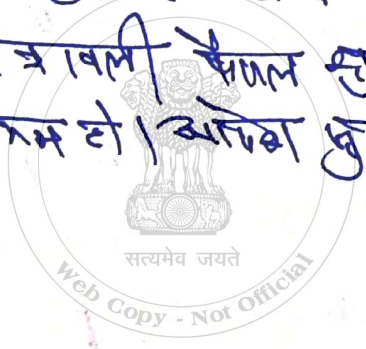 पत्रावली फैसल शु
कम हो। आदेश सु
सत्यमेव जयते
Web Copy - Not Official